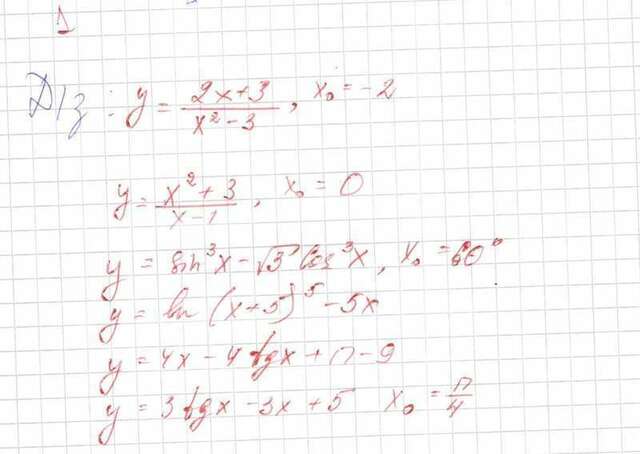 1
Д/з: y = (2x+3)/(x² - 3), x₀ = -2
y = (x² + 3)/(x - 1), x₀ = 0
y = sin³x - √3 cos³x, x₀ = 60°
y = ln (x+5)⁵ - 5x
y = 4x - 4 tgx + π - 9
y = 3 tgx - 3x + 5 x₀ = π/4